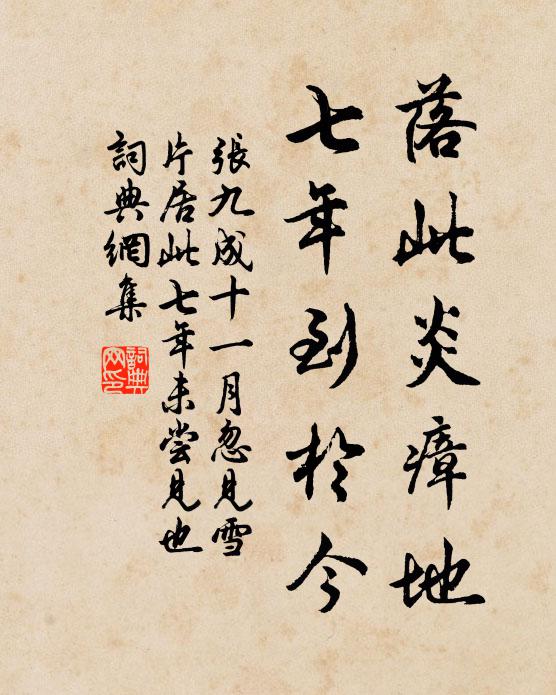 落此炎瘴地
七年到於今
張九成十一月忽見雪
片居此七年未嘗見也
詞典網集
詞典
网印